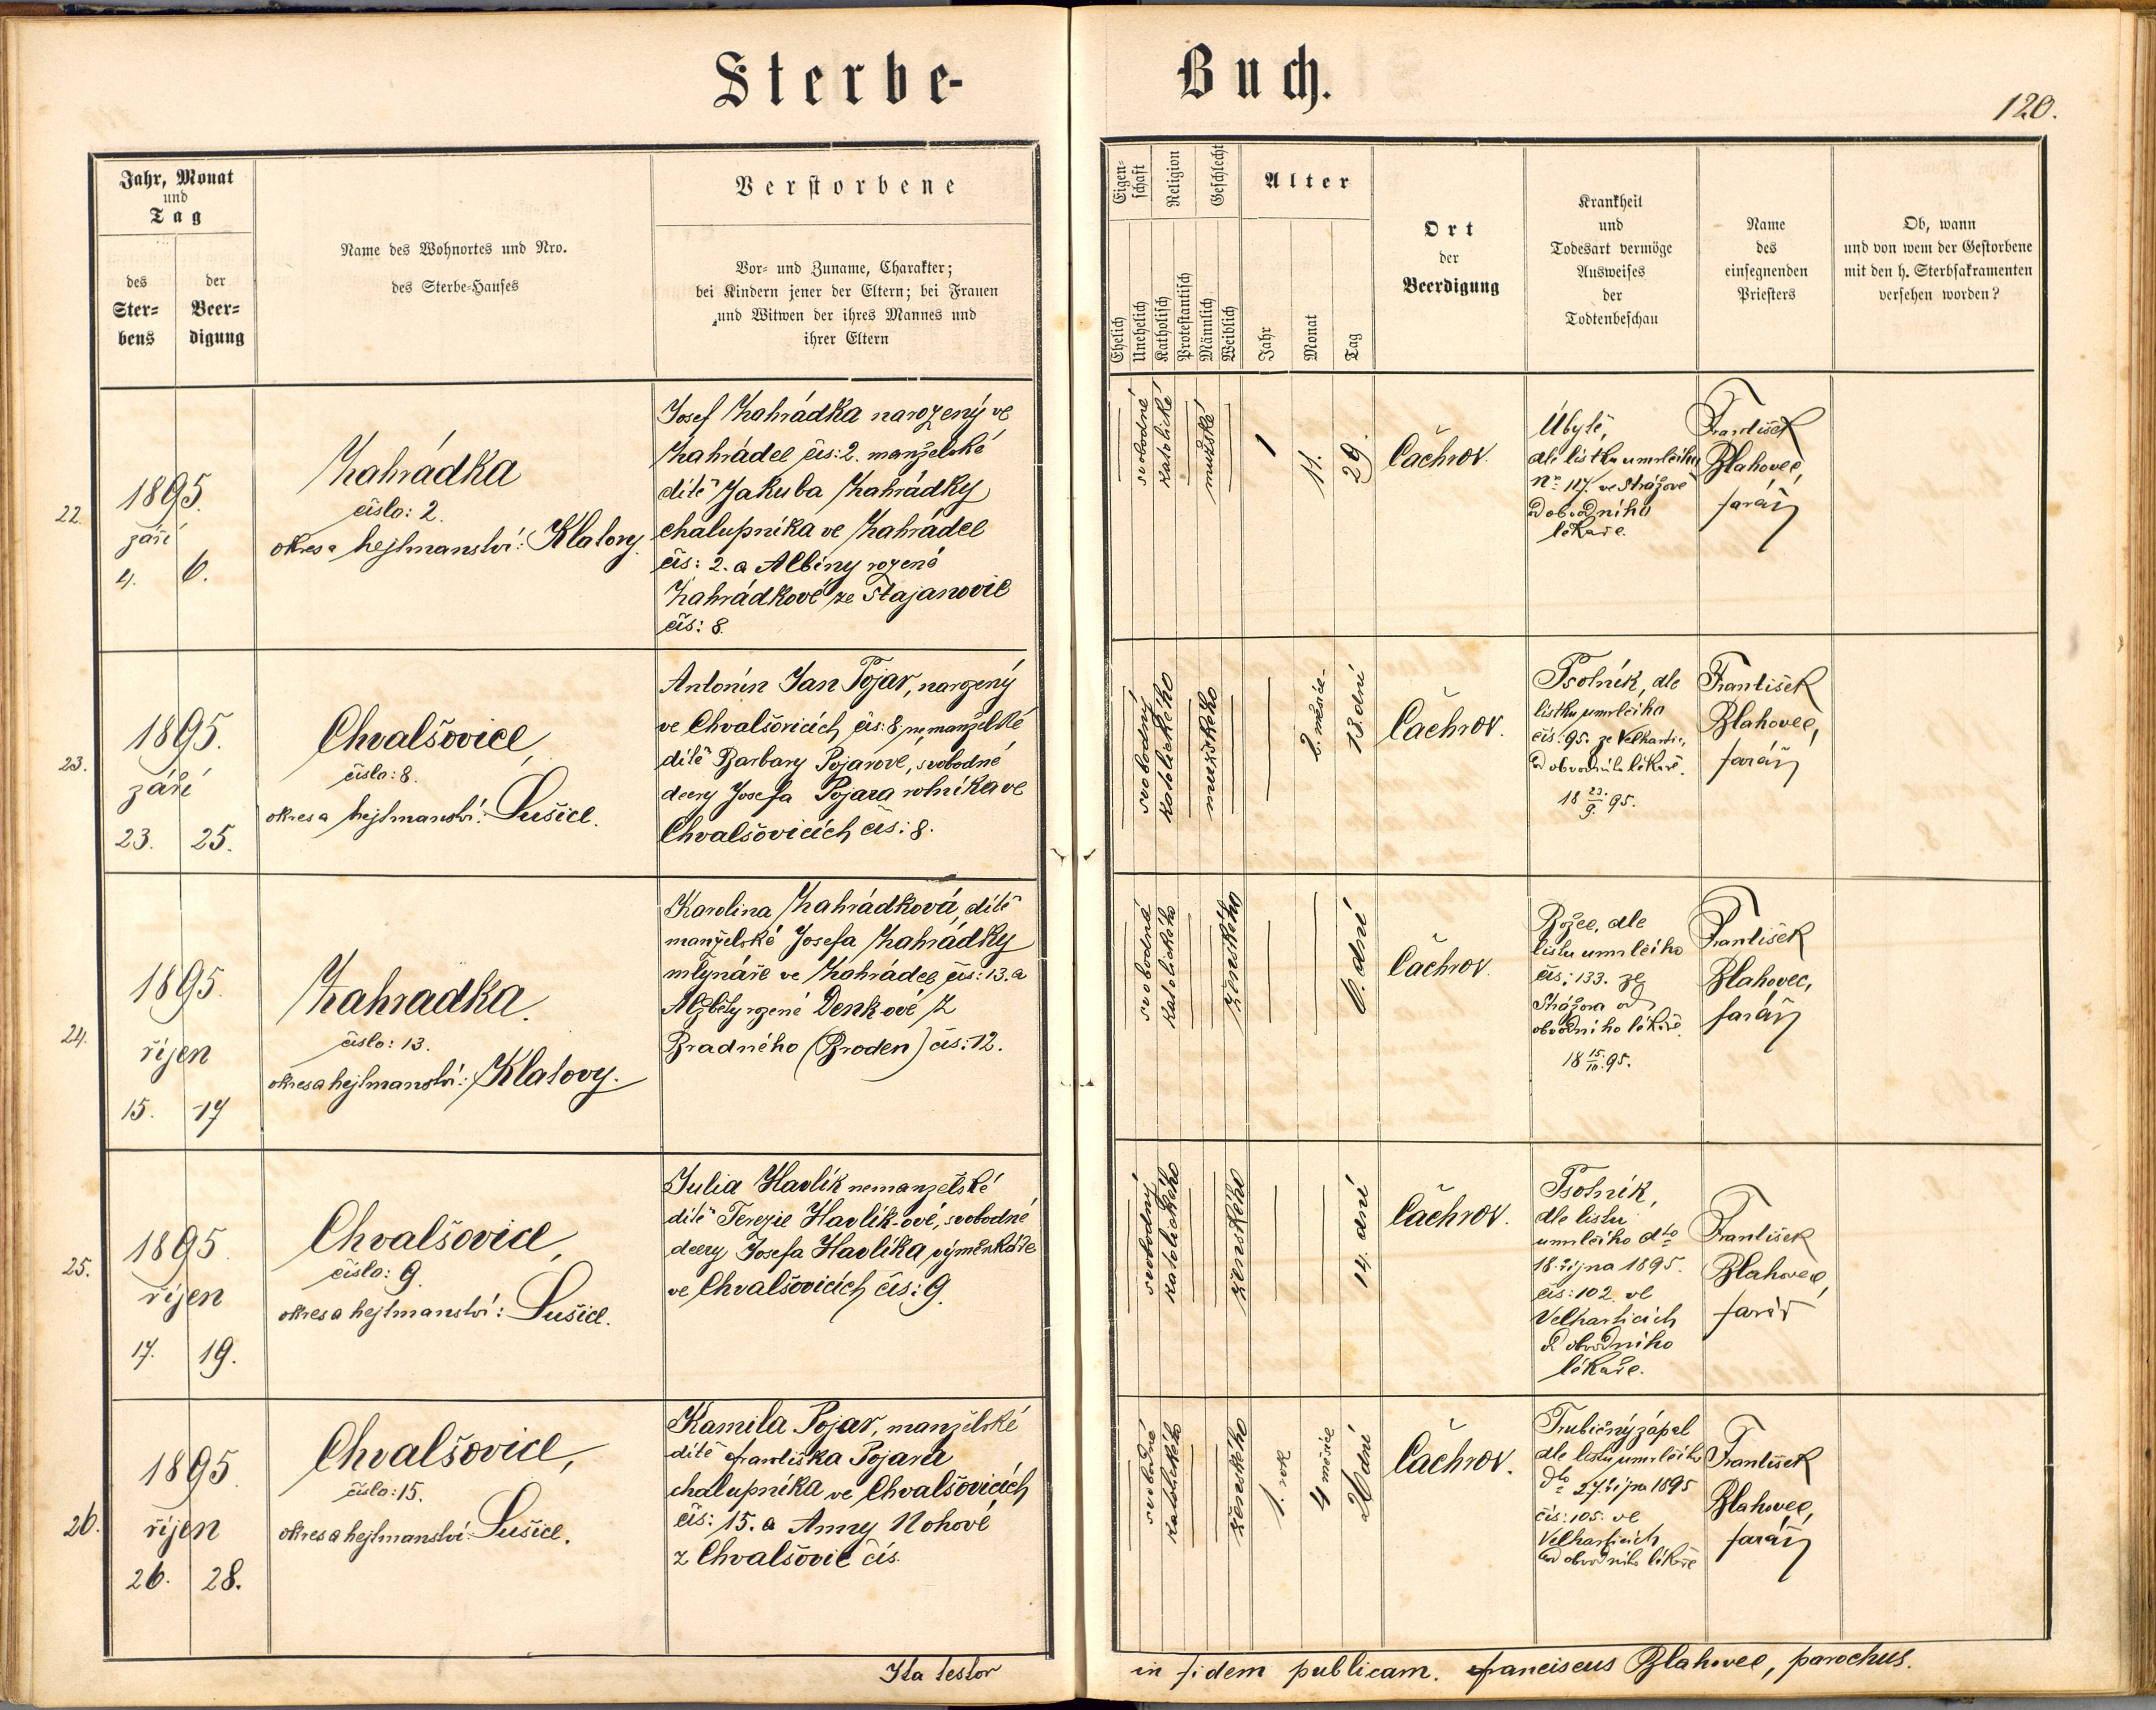 Sterbe-
Buch.
120.
Jahr, Monat
und
Tag
des
Ster-
bens
der
Beer-
digung
Name des Wohnortes und Nro.
des Sterbe-Hauses
Verstorbene
Vor- und Zuname, Charakter;
bei Kindern jener der Eltern; bei Frauen
und Witwen der ihres Mannes und
ihrer Eltern
Eigen-
schaft
Religion
Geschlecht
Ehelich
Unehelich
Katholisch
Protestantisch
Männlich
Weiblich
Alter
Jahr
Monat
Tag
Ort
der
Beerdigung
Krankheit
und
Todesart vermöge
Ausweises
der
Todtenbeschau
Name
des
einsegnenden
Priesters
Ob, wann
und von wem der Gestorbene
mit den h. Sterbsakramenten
versehen worden?
22.
1895.
září
4. 6.
Zahrádka
číslo: 2.
okres a hejtmanství: Klatovy.
Josef Zahrádka narozený ve
Zahrádce čís: 2. manželské
dítě Jakuba Zahrádky
chalupníka ve Zahrádce
čís: 2. a Albíny rozené
Zahrádkové ze Stajanovic
čís: 8.
svobodné
katolické
mužské
1
11.
29.
Čachrov.
Úbytě,
dle lístku umrlčího
No 117. ve Strážově
od obvodního
lékaře.
František
Blahovec,
farář
23.
1895.
září
23. 25.
Chvalšovice,
číslo: 8.
okres a hejtmanství: Sušice.
Antonín Jan Pojar, narozený
ve Chvalšovicích čís: 8. nemanželské
dítě Barbary Pojarové, svobodné
dcery Josefa Pojara rolníka ve
Chvalšovicích čís: 8.
svobodný
katolického
mužského
2. měsíce-
13. dní
Čachrov.
Psotník, dle
lístku umrlčího
čís: 95. ze Velhartic,
od obvodního lékaře.
18 23./9. 95.
František
Blahovec,
farář
24.
1895.
říjen
15. 17
Zahradka.
číslo: 13.
okres a hejtmanství: Klatovy.
Karolina Zahrádková, dítě
manželské Josefa Zahrádky
mlynáře ve Zahrádce čís: 13. a
Alžběty rozené Denkové z
Bradného (Broden) čís: 12.
svobodná
katolického
ženského
6. dní
Čachrov.
Božec, dle
listu umrlčího
čís: 133. ze
Strážova od
obvodního lékaře.
18 15./10. 95.
František
Blahovec,
farář
25.
1895.
říjen
17. 19.
Chvalšovice,
číslo: 9.
okres a hejtmanství: Sušice.
Julia Havlík nemanželské
dítě Terezie Havlík-ové, svobodné
dcery Josefa Havlíka, výměnkáře
ve Chvalšovicích čís: 9.
svobodný
katolického
ženského
14. dní
Čachrov.
Psotník,
dle listu
umrlčího dto
18. října 1895.
čís: 102. ve
Velharticích
od obvodního
lékaře.
František
Blahovec,
farář
26.
1895
říjen
26. 28.
Chvalšovice,
číslo: 15.
okres a hejtmanství: Sušice.
Kamila Pojar, manželské
dítě Františka Pojara
chalupníka ve Chvalšovicích
čís: 15. a Anny Nohové
z Chvalšovic čís.
svobodné
katolického
ženského
1. rok
4 měsíce
26 dní
Čachrov.
Trubičný zápal
dle listu umrlčího
dto 27. října 1895
čís: 105. ve
Velharticích
od obvodního lékaře
František
Blahovec,
farář
Ita testor
in fidem publicam. Franciscus Blahovec, parochus.